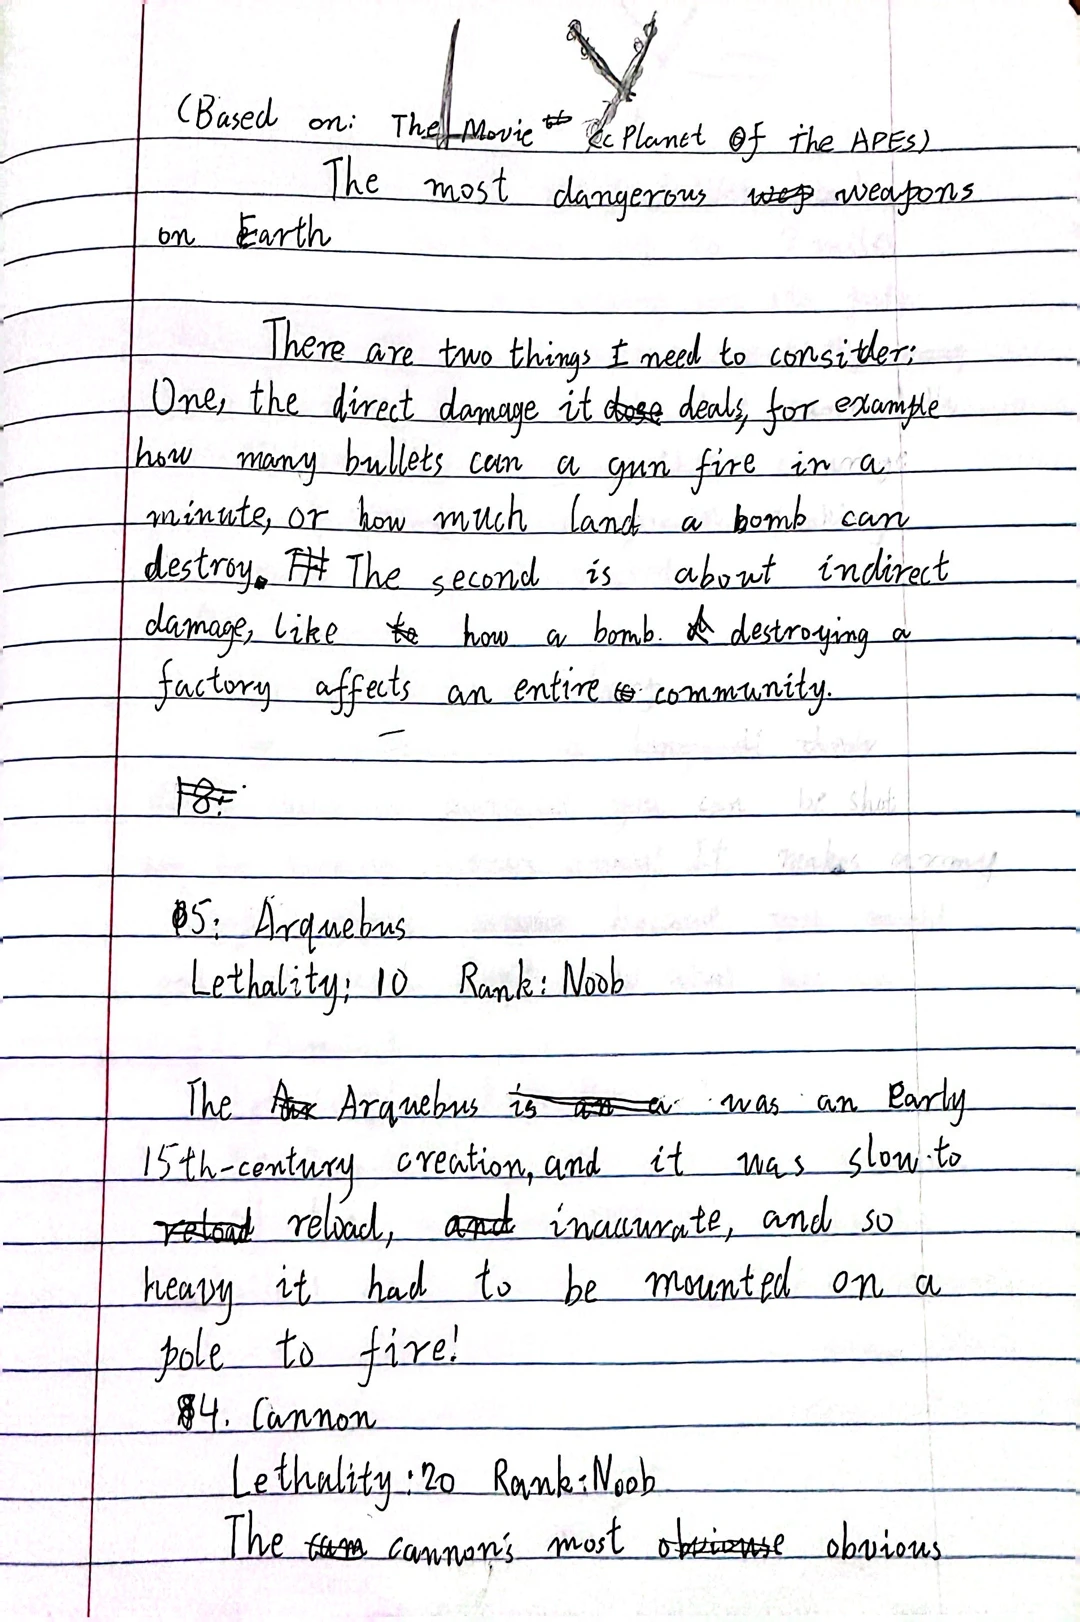 (Based on: The Movie Planet Of the APEs)
The most dangerous weapons
on Earth
There are two things I need to consider:
One, the direct damage it deals, for example
how many bullets can a gun fire in a
minute, or how much land a bomb can
destroy. The second is about indirect
damage, like how a bomb. destroying a
factory affects an entire community.
5: Arquebus
Lethality: 10 Rank: Noob
The Arquebus was an Early
15th-century creation, and it was slow to
reload, inaccurate, and so
heavy it had to be mounted on a
pole to fire!
4. Cannon
Lethality: 20 Rank: Noob
The cannon's most obvious